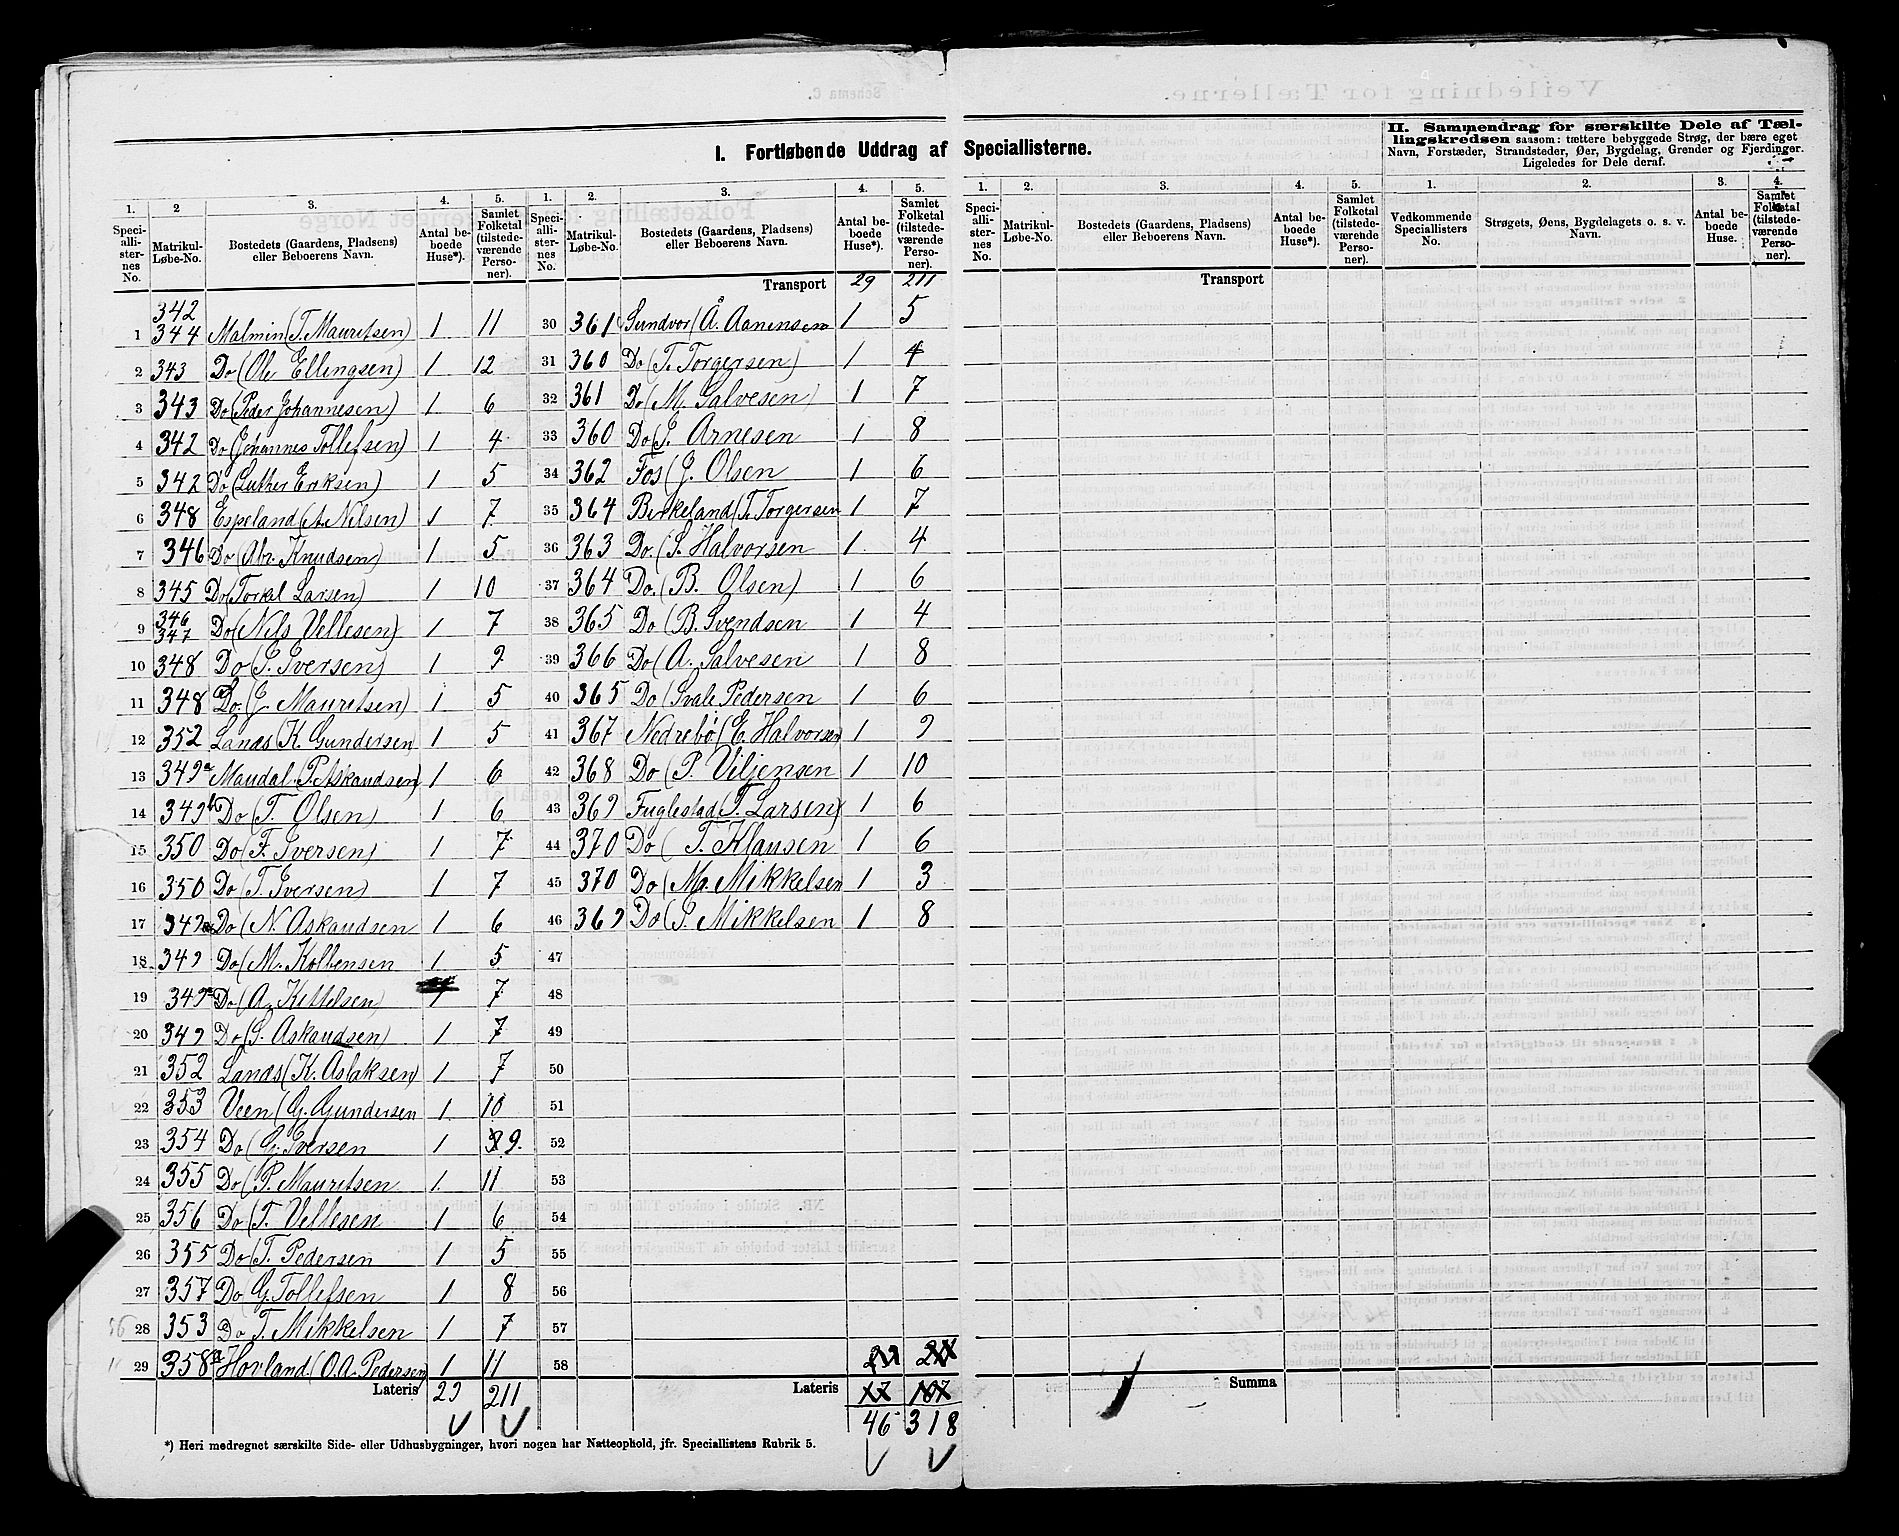 I. Fortløbende Uddrag af Speciallisterne.
II. Sammendrag for særskilte Dele af Tæl-
lingskredsen saasom: tættere bebyggede Strøg, der bære eget
Navn, Forstæder, Strandsteder, Øer, Bygdelag, Grender og Fjerdinger.
Ligeledes for Dele deraf.
1. 2 3. 4. 5.
Speci-alli-ster-nes No. Matrikul-Løbe-No. Bostedets (Gaardens, Pladsens) eller Beboerens Navn. Antal be-boede Huse*). Samlet Folketal (tilstede-værende Perso-ner).
1 342 344 Malmin (T. Mauritsen) 1 11
2 343 Do (Ole Ellingsen) 1 12
3 343 Do (Peder Johannesen) 1 6
4 342 Do (Johannes Tollefsen) 1 4
5 342 Do (Luther Eriksen) 1 5
6 348 Espeland (A. Nilsen) 1 7
7 346 Do (Abr. Knudsen) 1 5
8 345 Do (Torkel Larsen) 1 10
9 346 347 Do (Nils Vellesen) 1 7
10 348 Do (G. Iversen) 1 9
11 348 Do. (J. Mauritsen) 1 5
12 352 Lands (K. Gundersen 1 5
13 349a Maudal (P. Askaudsen) 1 6
14 349b Do (T. Olsen) 1 6
15 350 Do (F. Iversen) 1 7
16 350 Do (T. Iversen) 1 7
17 349a Do (N. Askaudsen 1 6
18 349 Do (M. Kolbensen 1 5
19 349a Do (A. Kettelsen) 1 7
20 349 Do (S. Askaudsen) 1 7
21 352 Lands (K. Aslaksen) 1 7
22 353 Veen (G. Gundersen 1 10
23 354 Do (G. Iversen 1 9.
24 355 Do (P. Mauritsen 1 11
25 356 Do (T. Vellesen 1 6
26 355 Do (T. Pedersen 1 5
27 357 Do G. Tollefsen 1 8
28 353 Do T. Mikkelsen 1 7
29 358a Hovland (O. A. Pedersen 1 11
Lateris 29 211
1. 2. 3. 4. 5.
Speci-alli-ster-nes No. Matrikul-Løbe-No. Bostedets (Gaardens, Pladsens) eller Beboerens Navn. Antal be-boede Huse*). Samlet Folketal (tilstede-værende Perso-ner).
Transport 29 211
30 361 Sundvor (Å. Aanensen 1 5
31 360 Do (T. Torgersen) 1 4
32 361 Do (M. Salvesen) 1 7
33 360 Do (S. Arnesen 1 8
34 362 Fos (J. Olsen 1 6
35 364 Birkeland (T. Torgersen 1 7
36 363 Do. (S. Halvorsen 1 4
37 364 Do. (B. Olsen) 1 6
38 365 Do (B. Svendsen 1 4
39 366 Do (A. Salvesen 1 8
40 365 Do (Svale Pedersen 1 6
41 367 Nedrebø (E. Halvorsen 1 9
42 368 Do (P. Viljensen 1 10
43 369 Fuglestad (T. Larsen) 1 6
44 370 Do ( T. Klausen 1 6
45 370 Do (M. Mikkelsen 1 3
46 369 Do (P. Mikkelsen 1 8
47
48
49
50
51
52
53
54
55
56
57
58
Lateris 17 107
46 318
*) Heri medregnet særskilte Side- eller Udhusbygninger, hvori nogen har Natteophold, jfr. Speciallistens Rubrik 5.
1. 2. 3. 4. 5.
Speci-alli-ster-nes No. Matrikul-Løbe-No. Bostedets (Gaardens, Pladsens) eller Beboerens Navn. Antal be-boede Huse*). Samlet Folketal (tilstede-værende Perso-ner).
Transport
Summa
1. 2. 3. 4.
Vedkommende Speciallisters No. Strøgets, Øens, Bygdelagets o. s. v. Navn. Antal be-boede Huse. Samlet Folketal (tilstede-værende Perso-ner).